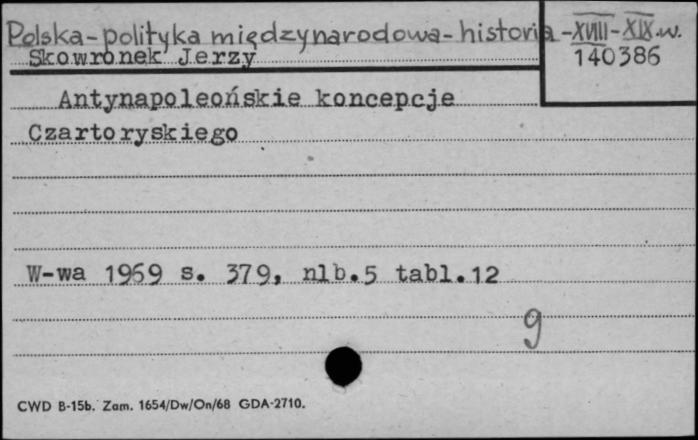 Polska-polityka międzynarodowa-historia-XVIII-XIX w.
Skowronek Jerzy
140386
Antynapoleońskie koncepcje
Czartoryskiego
W-wa 1969 s. 379, nlb.5 tabl.12
9
CWD B-15b. Zam. 1654/Dw/On/68 GDA-2710.